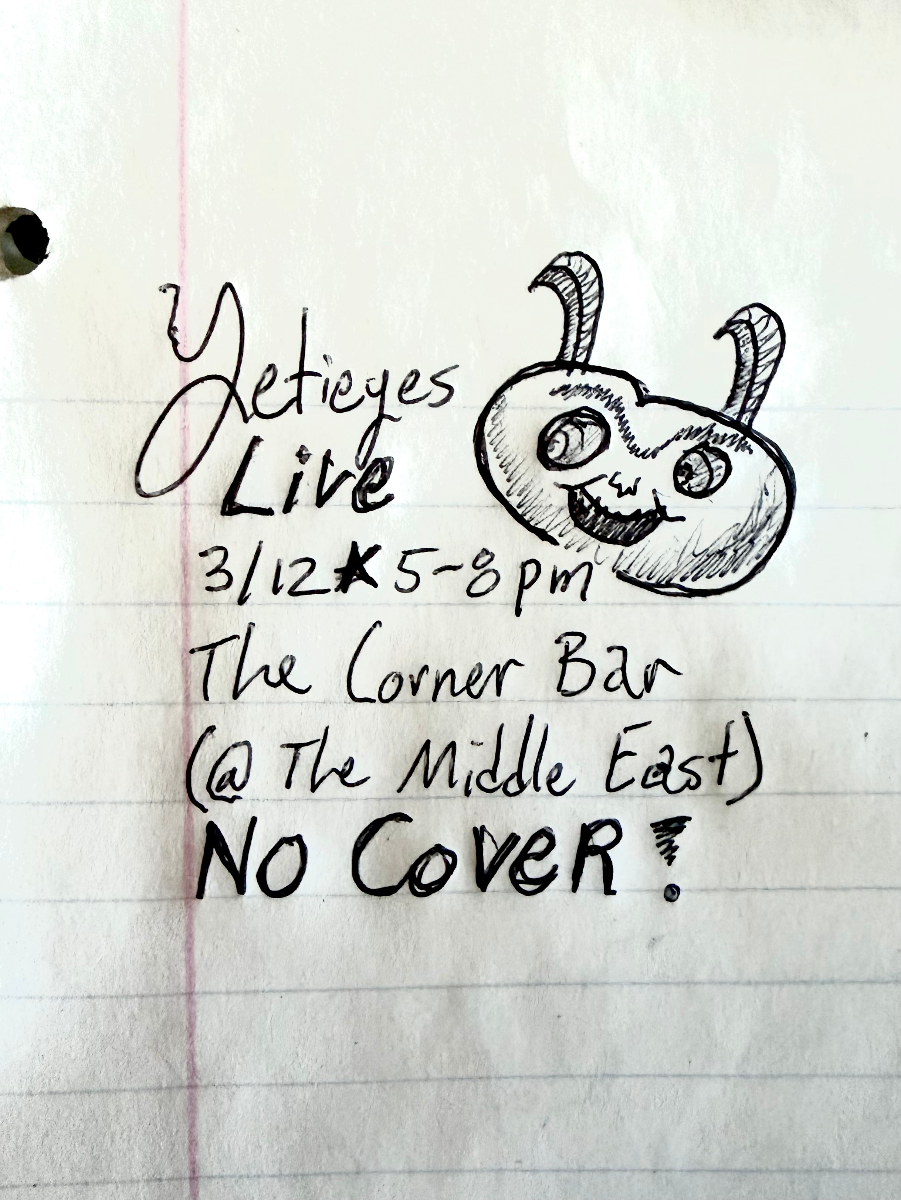 Yetieyes
Live
3/12★5-8pm
The Corner Bar
(@ The Middle East)
No CoveR!